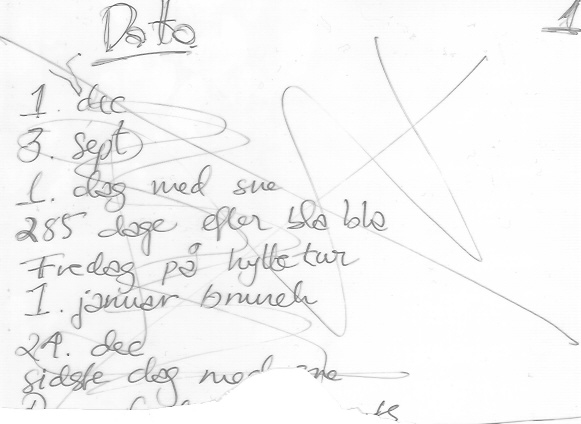 Dato
1
1. dec
3. sept
1. dag med sne
285 dage efter bla bla
Fredag på hyttetur
1. januar brunch
24. dec
sidste dag med sne